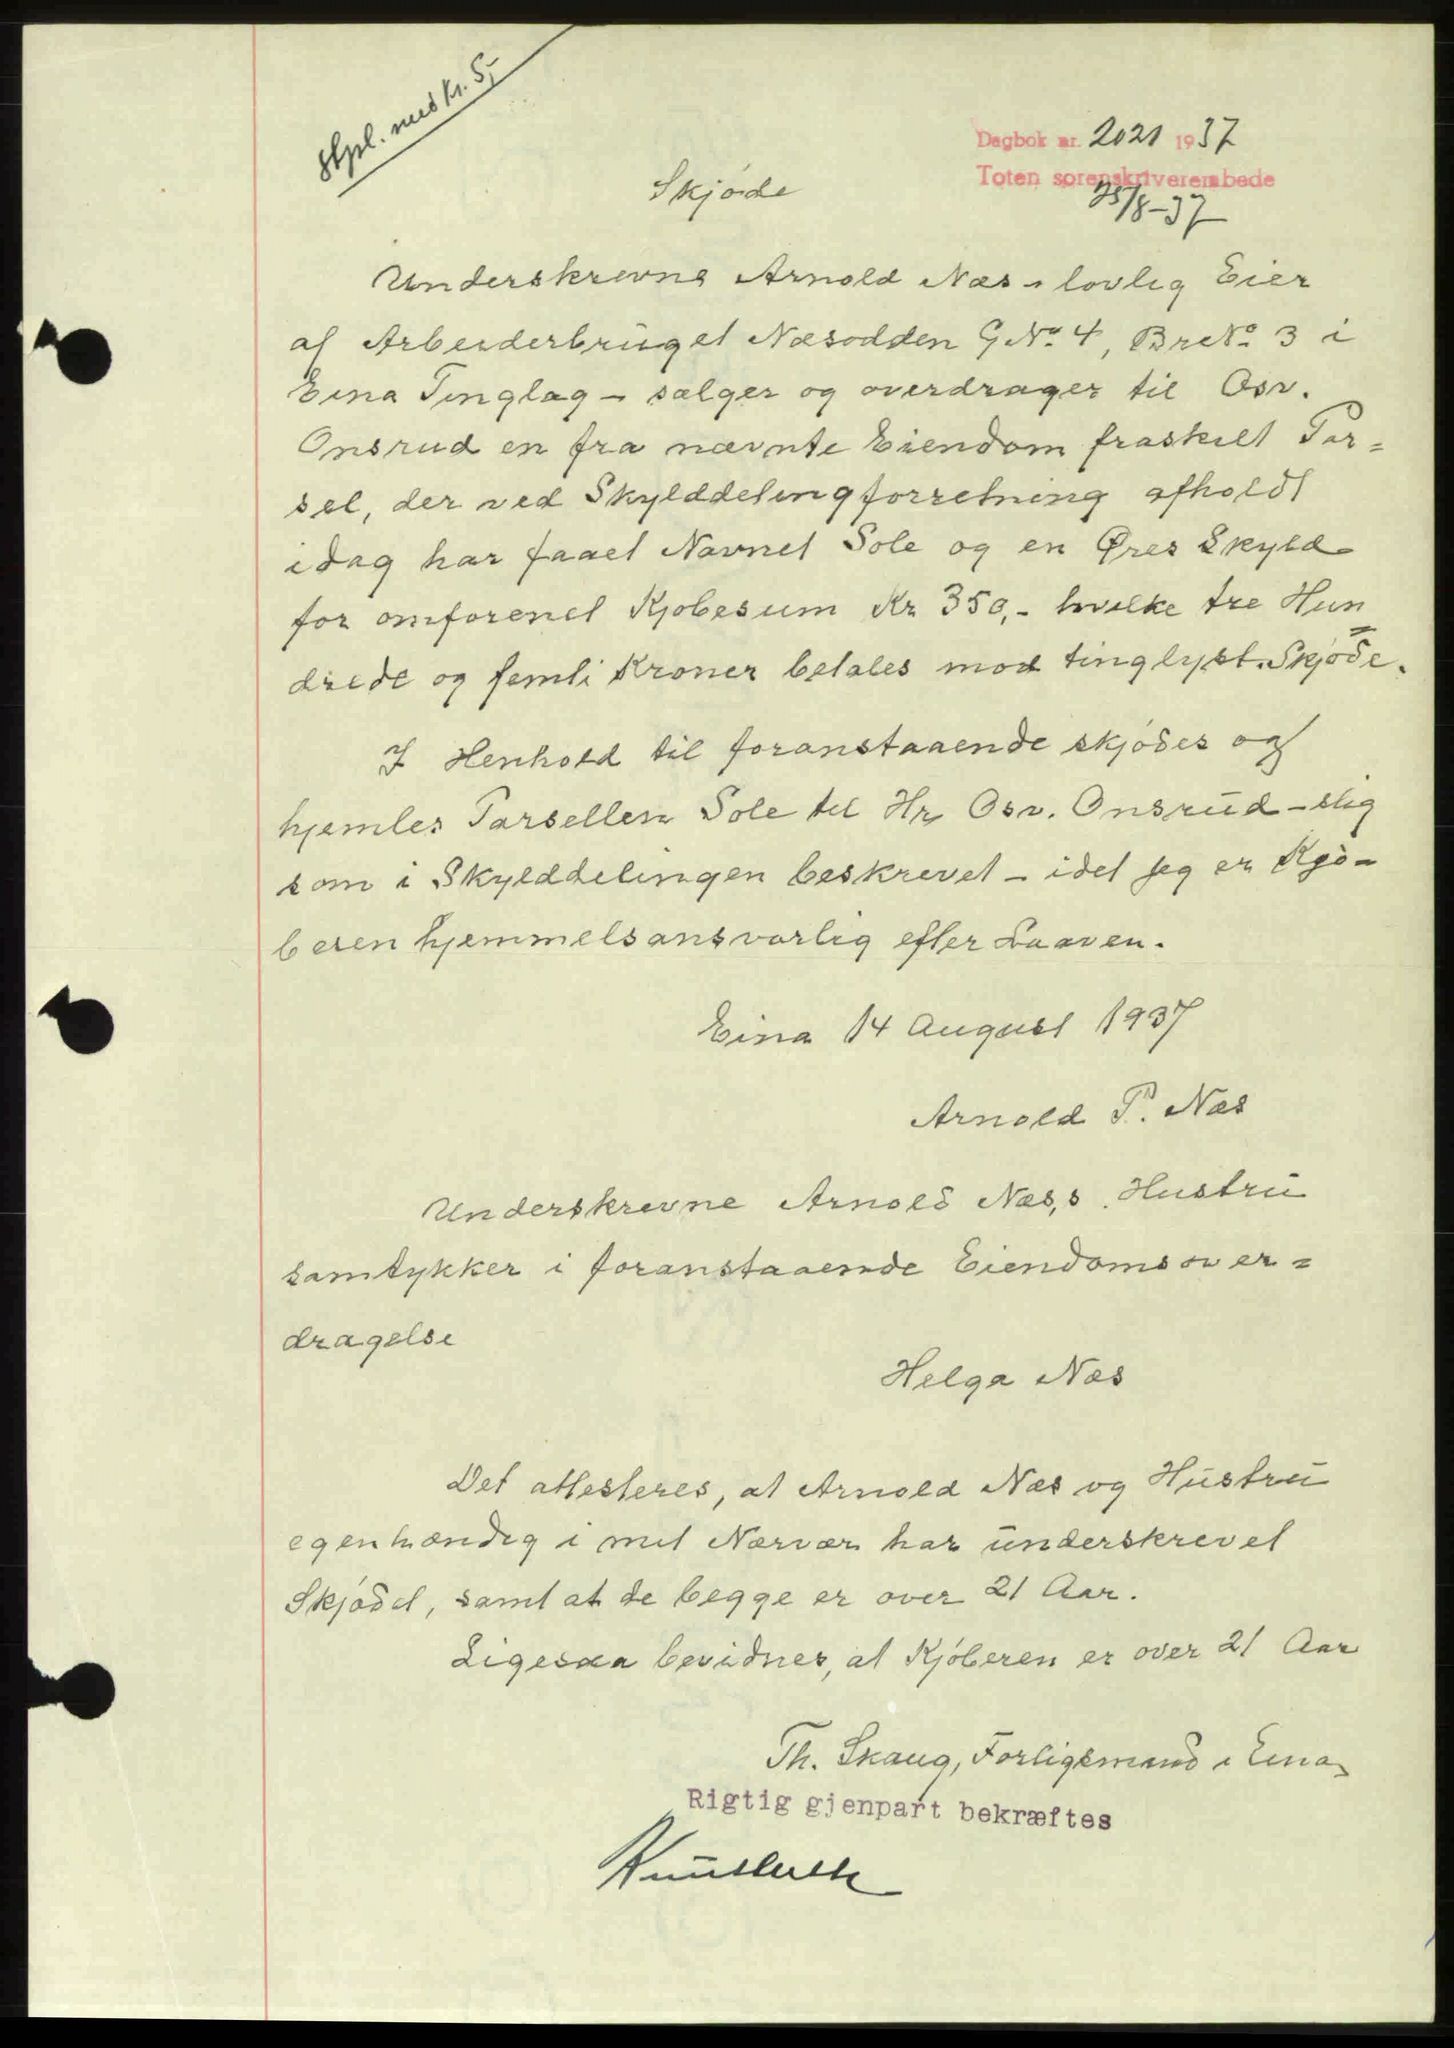 Stpl. med kr. 5,-
Dagbok nr. 2021 1937
Toten sorenskriverembede
25/8-37
Skjøde
Underskrevne Arnold Næs - lovlig Eier
af Arbeiderbruget Næsodden G No. 4, Br No. 3 i
Eina Tinglag - sælger og overdrager til Osv.
Onsrud en fra nævnte Eiendom fraskilt Par=
sel, der ved Skylddelingforretning afholdt
idag har faaet Navnet Sole og en Øres Skyld
for omforenet Kjøbesum Kr 350,- hvilke tre Hun=
drede og femti Kroner betales mod tinglyst Skjøde.
I Henhold til foranstaaende skjødes og
hjemles Parsellen Sole til Hr Osv. Onsrud - slig
som i Skylddelingen beskrevet - idet jeg er Kjø-
beren hjemmelsansvarlig efter Loven.
Eina 14 August 1937
Arnold P. Næs
Underskrevne Arnold Næs,s Hustru
samtykker i foranstaaende Eiendomsover=
dragelse
Helga Næs
Det attesteres, at Arnold Næs og Hustru
egenhændig i mit Nærvær har underskrevet
Skjødet, samt at de begge er over 21 Aar.
Ligesaa bevidnes, at Kjøberen er over 21 Aar
Th. Skaug, Forligsmand i Eina
Rigtig gjenpart bekræftes